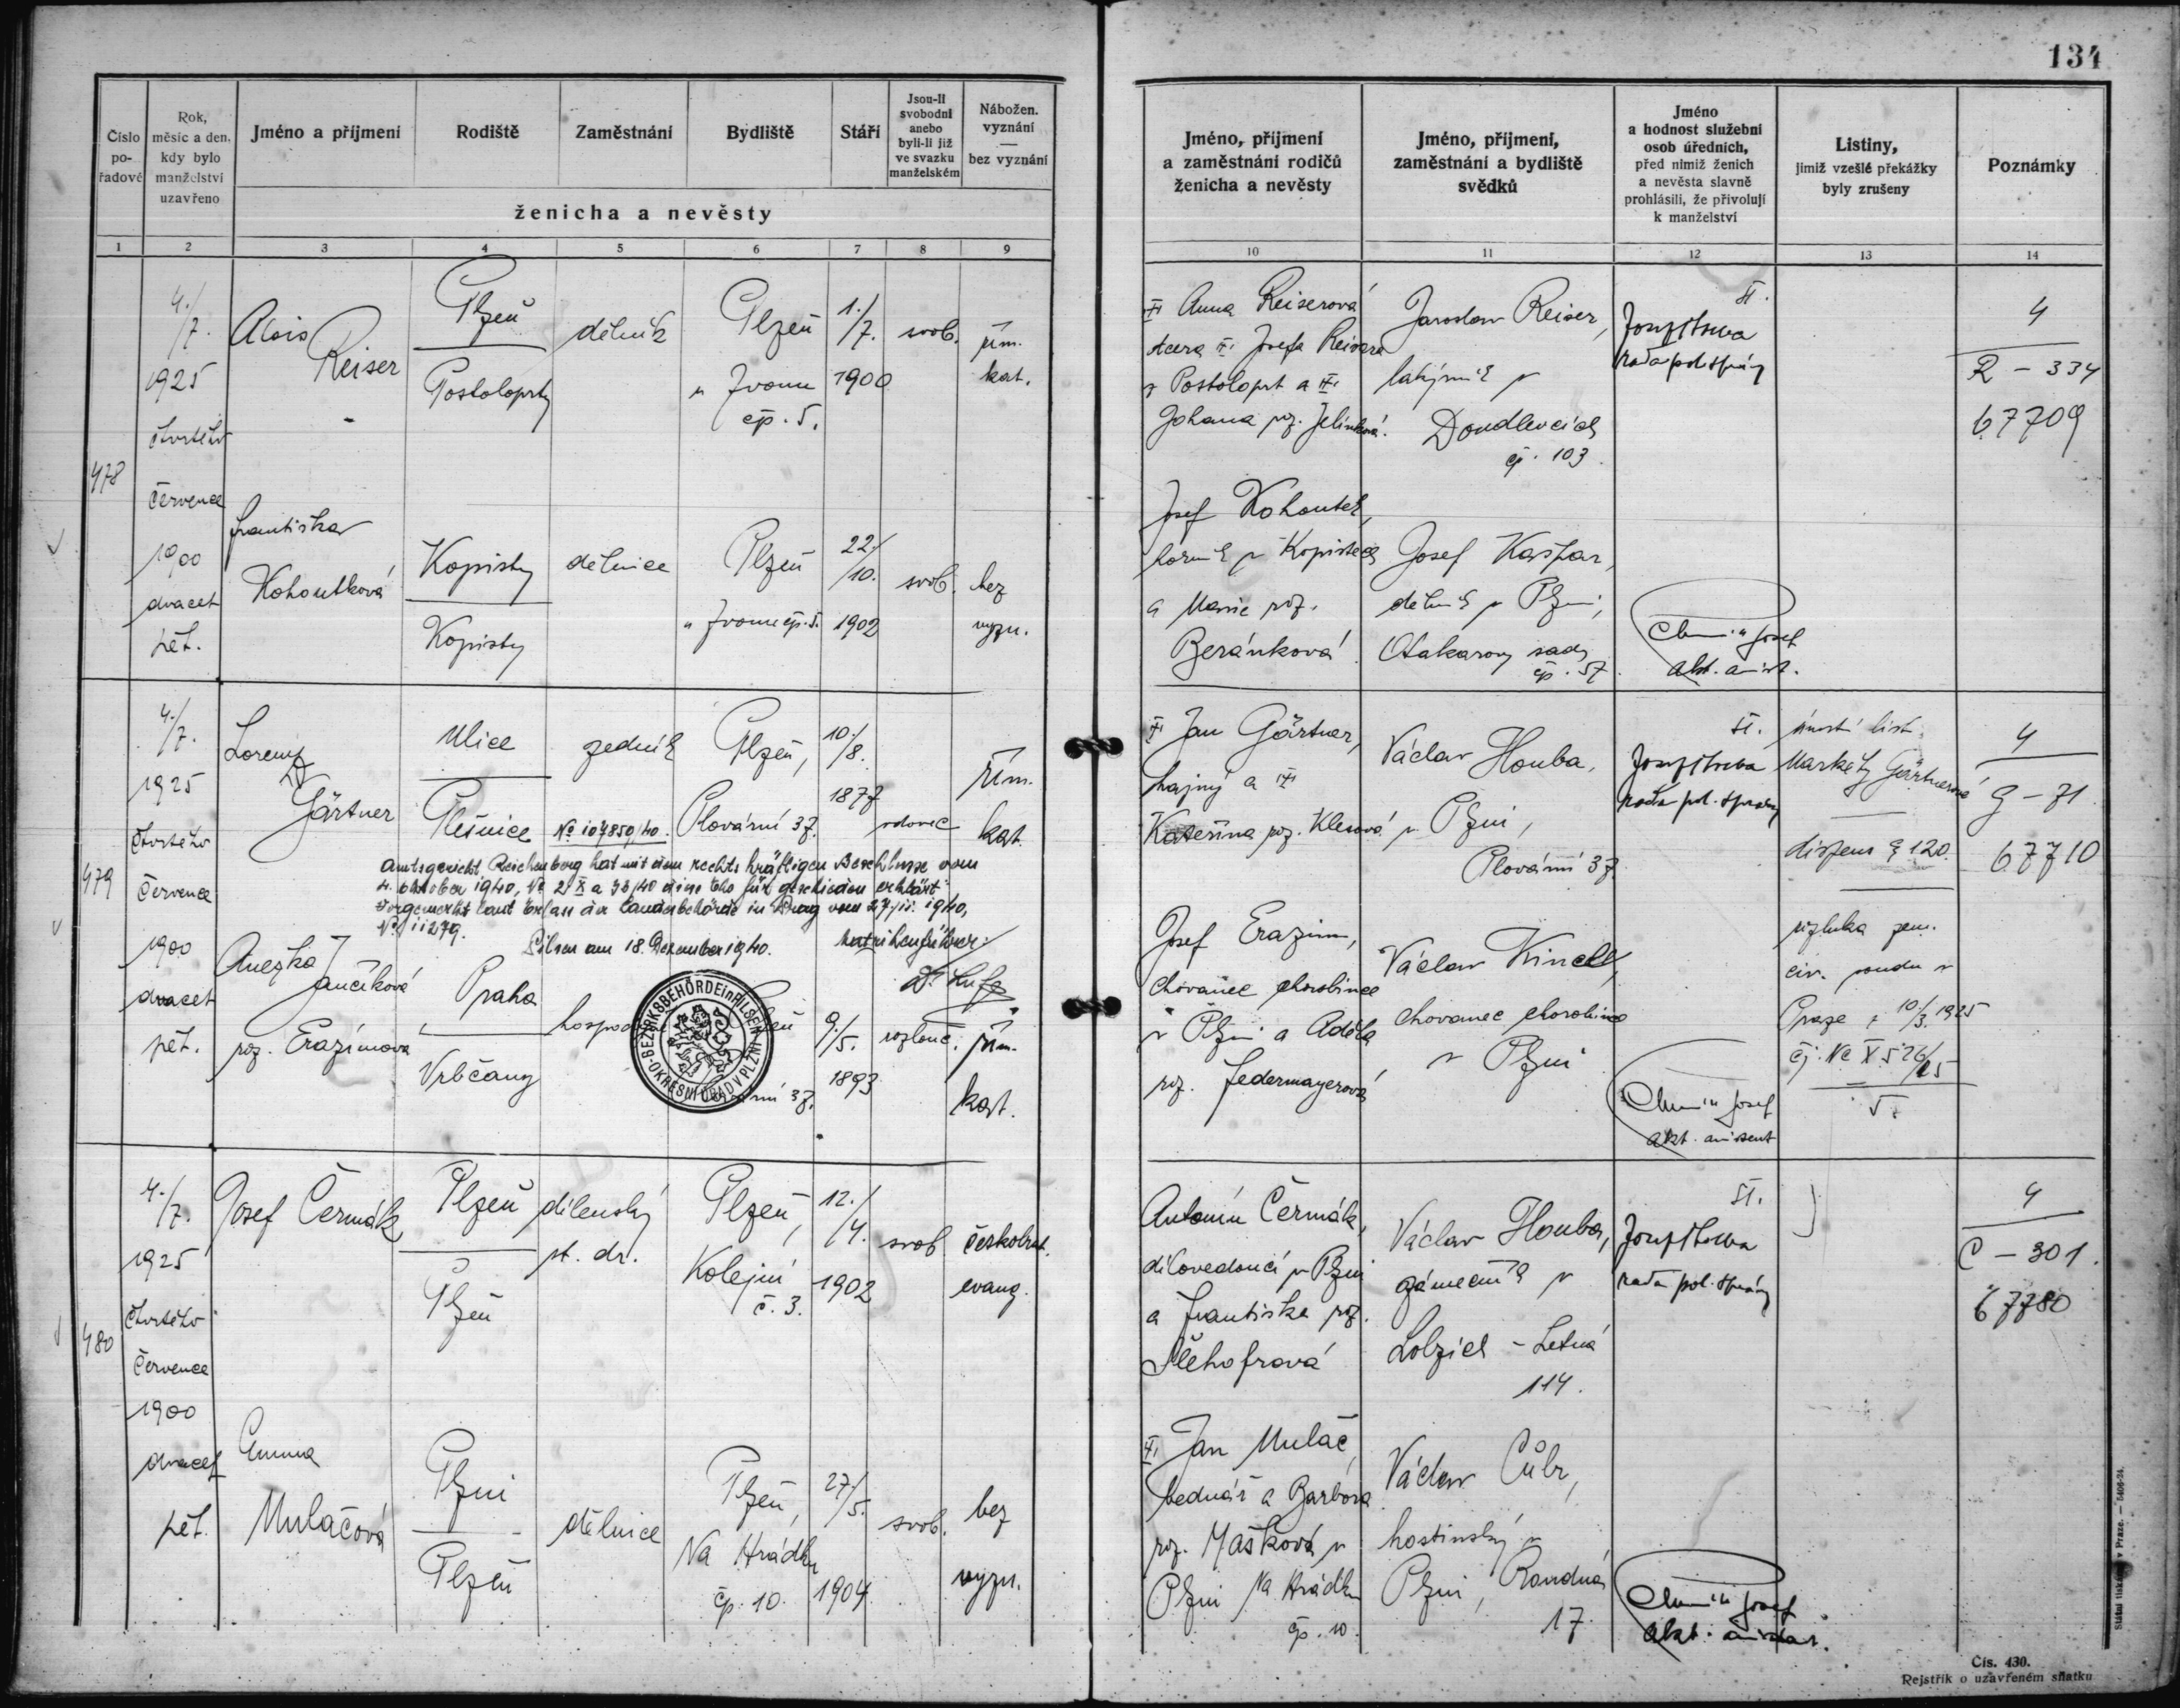 134
Číslo pořadové
Rok, měsíc a den, kdy bylo manželství uzavřeno
Jméno a příjmení
Rodiště
Zaměstnání
Bydliště
Stáří
Jsou-li svobodni anebo byli-li již ve svazku manželském
Nábožen. vyznání — bez vyznání
ženicha a nevěsty
Jméno, příjmení a zaměstnání rodičů ženicha a nevěsty
Jméno, příjmení, zaměstnání a bydliště svědků
Jméno a hodnost služební osob úředních, před nimiž ženich a nevěsta slavně prohlásili, že přivolují k manželství
Listiny, jimiž vzešlé překážky byly zrušeny
Poznámky
1 2 3 4 5 6 7 8 9 10 11 12 13 14
478
4./7.
1925
čtvrtého
července
1900
dvacet
pět.
Alois
Reiser
Plzeň
Postoloprty
dělník
Plzeň
u Zvonu
čp. 5.
1./7.
1900
svob.
řím.
kat.
Anna Reiserová
dcera Josefa Reisera
z Postoloprt a
Johana roz. Jelínková.
Jaroslav Reiser,
v
Doudlevcích
čp. 103.
rada pol. správy
4
R - 334
67709
Františka
Kohoutková
Kopisty
Kopisty
dělnice
Plzeň
u Zvonu čp. 5.
22./10.
1902
svob.
bez
vyzn.
Josef Kohoutek,
horník v Kopistech
a Marie roz.
Beránková.
Josef Kašpar,
dělník v Plzni,
Otakarovy sady
čp. 57.
Josef
akt. asist.
479
4./7.
1925
čtvrtého
července
1900
dvacet
pět.
Lorenz
Gärtner
Ulice
Plešnice
zedník
Plzeň,
Plovární 37.
10./8.
1877
vdovec
řím.
kat.
No 107850/40.
Amtsgericht Reichenberg hat mit dem rechtskräftigen Beschlusse vom
4. Oktober 1940, No 2 X a 38/40 diese Ehe für geschieden erklärt.
Vorgemerkt laut Erlass der Landesbehörde in Prag vom 27./11. 1940,
No 11279.
Pilsen am 18. Dezember 1940.
Matrikenführer:
BEZIRKSBEHÖRDE in PILSEN
OKRESNÍ ÚŘAD V PLZNI
Jan Gärtner,
hajný a
Kateřina roz. Klesová
Václav Houba,
v Plzni,
Plovární 37
rada pol. správy
úmrtní list
Markéty Gärtnerové
dispens § 120.
4
G - 71.
67710
Anežka
Jančíková
roz. Erazimová
Praha
Vrbčany
9./5.
1893
rozlouč.
řím.
kat.
Josef Erazim,
chovanec chorobince
v Plzni a Adéla
roz. Federmayerová
Václav Kincl,
chovanec chorobince
v Plzni
Josef
akt. assistent
rozluka zem.
civ. soudu v
Praze z 10/3. 1925
čj. Nc X 526/25
480
4./7.
1925
čtvrtého
července
1900
dvacet
pět.
Josef Čermák
Plzeň
Plzeň
dílenský
st. dr.
Plzeň,
Kolejní
č. 3.
12./4.
1902
svob.
českobrat.
evang.
Antonín Čermák,
dílovedoucí v Plzni
a Františka roz.
Šlehofrová
Václav Houba,
zámečník v
Lobzích - Letná
114.
rada pol. správy
4
Č - 301.
67780
Emma
Mulačová
Plzni
Plzeň
dělnice
Plzeň,
Na Hrádku
čp. 10.
27./5.
1904.
svob.
bez
vyzn.
Jan Mulač,
bednář a Barbora
roz. Mašková v
Plzni Na Hrádku
čp. 10.
Václav Cůbr,
hostinský v
Plzni, Roudná
17.
Josef
akt.
Státní tiskárna v Praze. — 5406-24.
Čís. 430.
Rejstřík o uzavřeném sňatku